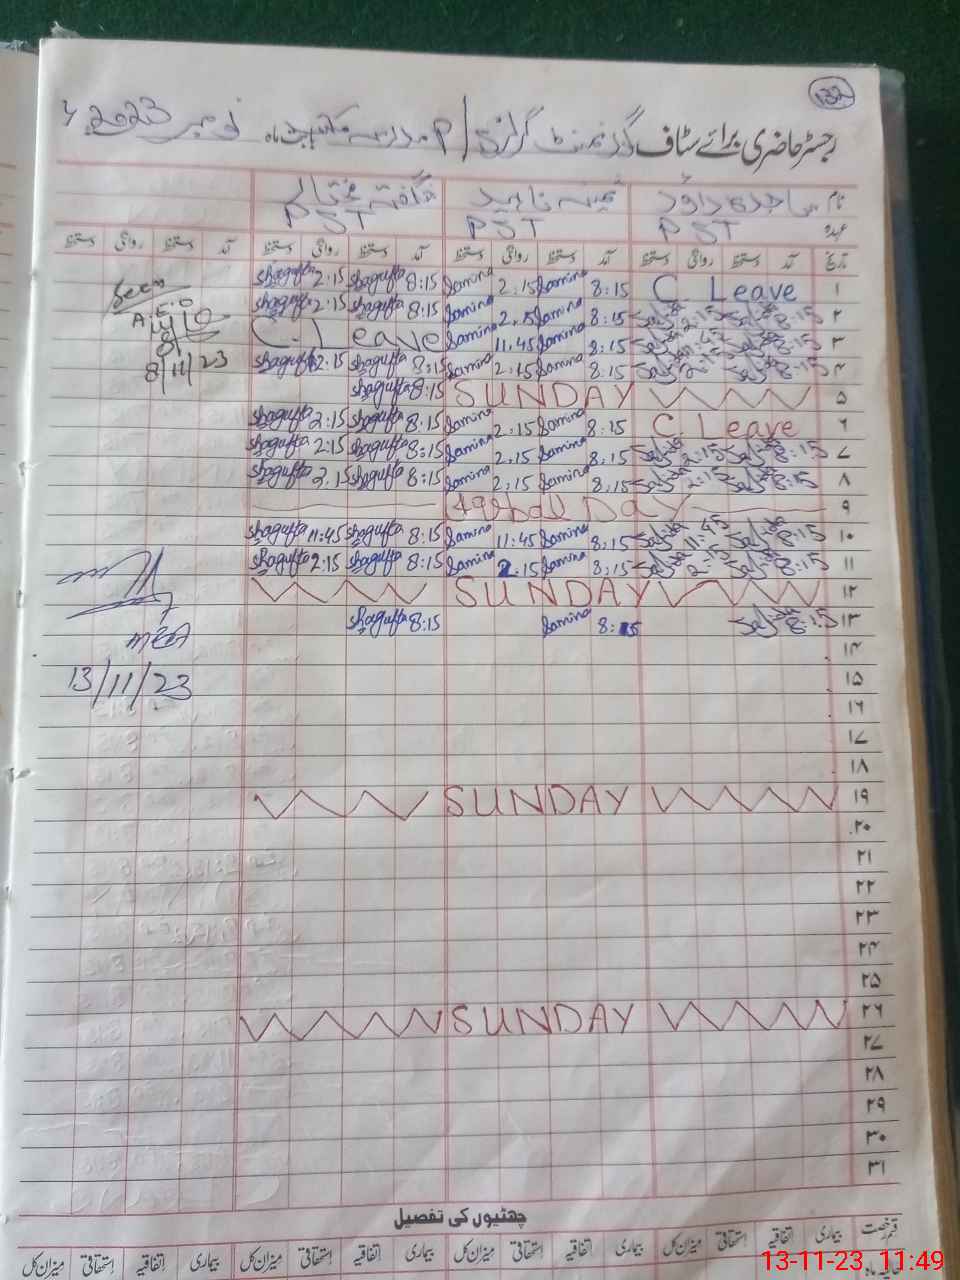 132
رجسٹر حاضری برائے سٹاف گورنمنٹ گرلز P/ مدرسہ بابت ماہ نومبر 2023ء
نام ساجدہ داؤد ثمینہ ناہید شگفتہ
عہدہ PST PST PST
تاریخ آمد دستخط روانگی دستخط آمد دستخط روانگی دستخط آمد دستخط روانگی دستخط آمد دستخط روانگی دستخط
۱ C. Leave 8:15 Samina 2:15 Samina 8:15 Shagufta 2:15 Shagufta
۲ 8:15 Sajida 2:15 Sajida 8:15 Samina 2:15 Samina 8:15 Shagufta 2:15 Shagufta
۳ 8:15 Sajida 11:45 Sajida 8:15 Samina 11:45 Samina C. Leave
۴ 8:15 Sajida 2:15 Sajida 8:15 Samina 2:15 Samina 8:15 Shagufta 2:15 Shagufta
۵ SUNDAY 8:15 Shagufta
۶ C. Leave 8:15 Samina 2:15 Samina 8:15 Shagufta 2:15 Shagufta
۷ 8:15 Sajida 2:15 Sajida 8:15 Samina 2:15 Samina 8:15 Shagufta 2:15 Shagufta
۸ 8:15 Sajida 2:15 Sajida 8:15 Samina 2:15 Samina 8:15 Shagufta 2:15 Shagufta
۹ Iqbal Day
۱۰ 8:15 Sajida 11:45 Sajida 8:15 Samina 11:45 Samina 8:15 Shagufta 11:45 Shagufta
۱۱ 8:15 Sajida 2:15 Sajida 8:15 Samina 2:15 Samina 8:15 Shagufta 2:15 Shagufta
۱۲ SUNDAY
۱۳ 8:15 Sajida 8:15 Samina 8:15 Shagufta
۱۴
۱۵
۱۶
۱۷
۱۸
۱۹ SUNDAY
۲۰
۲۱
۲۲
۲۳
۲۴
۲۵
۲۶ SUNDAY
۲۷
۲۸
۲۹
۳۰
۳۱
Seen
A.E.O
8/11/23
13/11/23
چھٹیوں کی تفصیل
قسم رخصت بیماری اتفاقیہ استحقاقی میزان کل بیماری اتفاقیہ استحقاقی میزان کل بیماری اتفاقیہ استحقاقی میزان کل بیماری اتفاقیہ استحقاقی میزان کل
13-11-23, 11:49